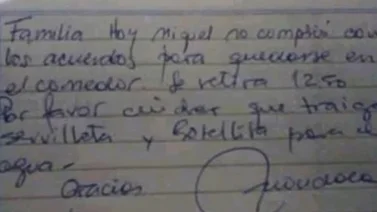 Familia Hoy Miguel no cumplió con
los acuerdos para quedarse en
el comedor. Se retira 12.50
Por favor cuidar que traiga
servilleta y botellita para el
agua -
Gracias